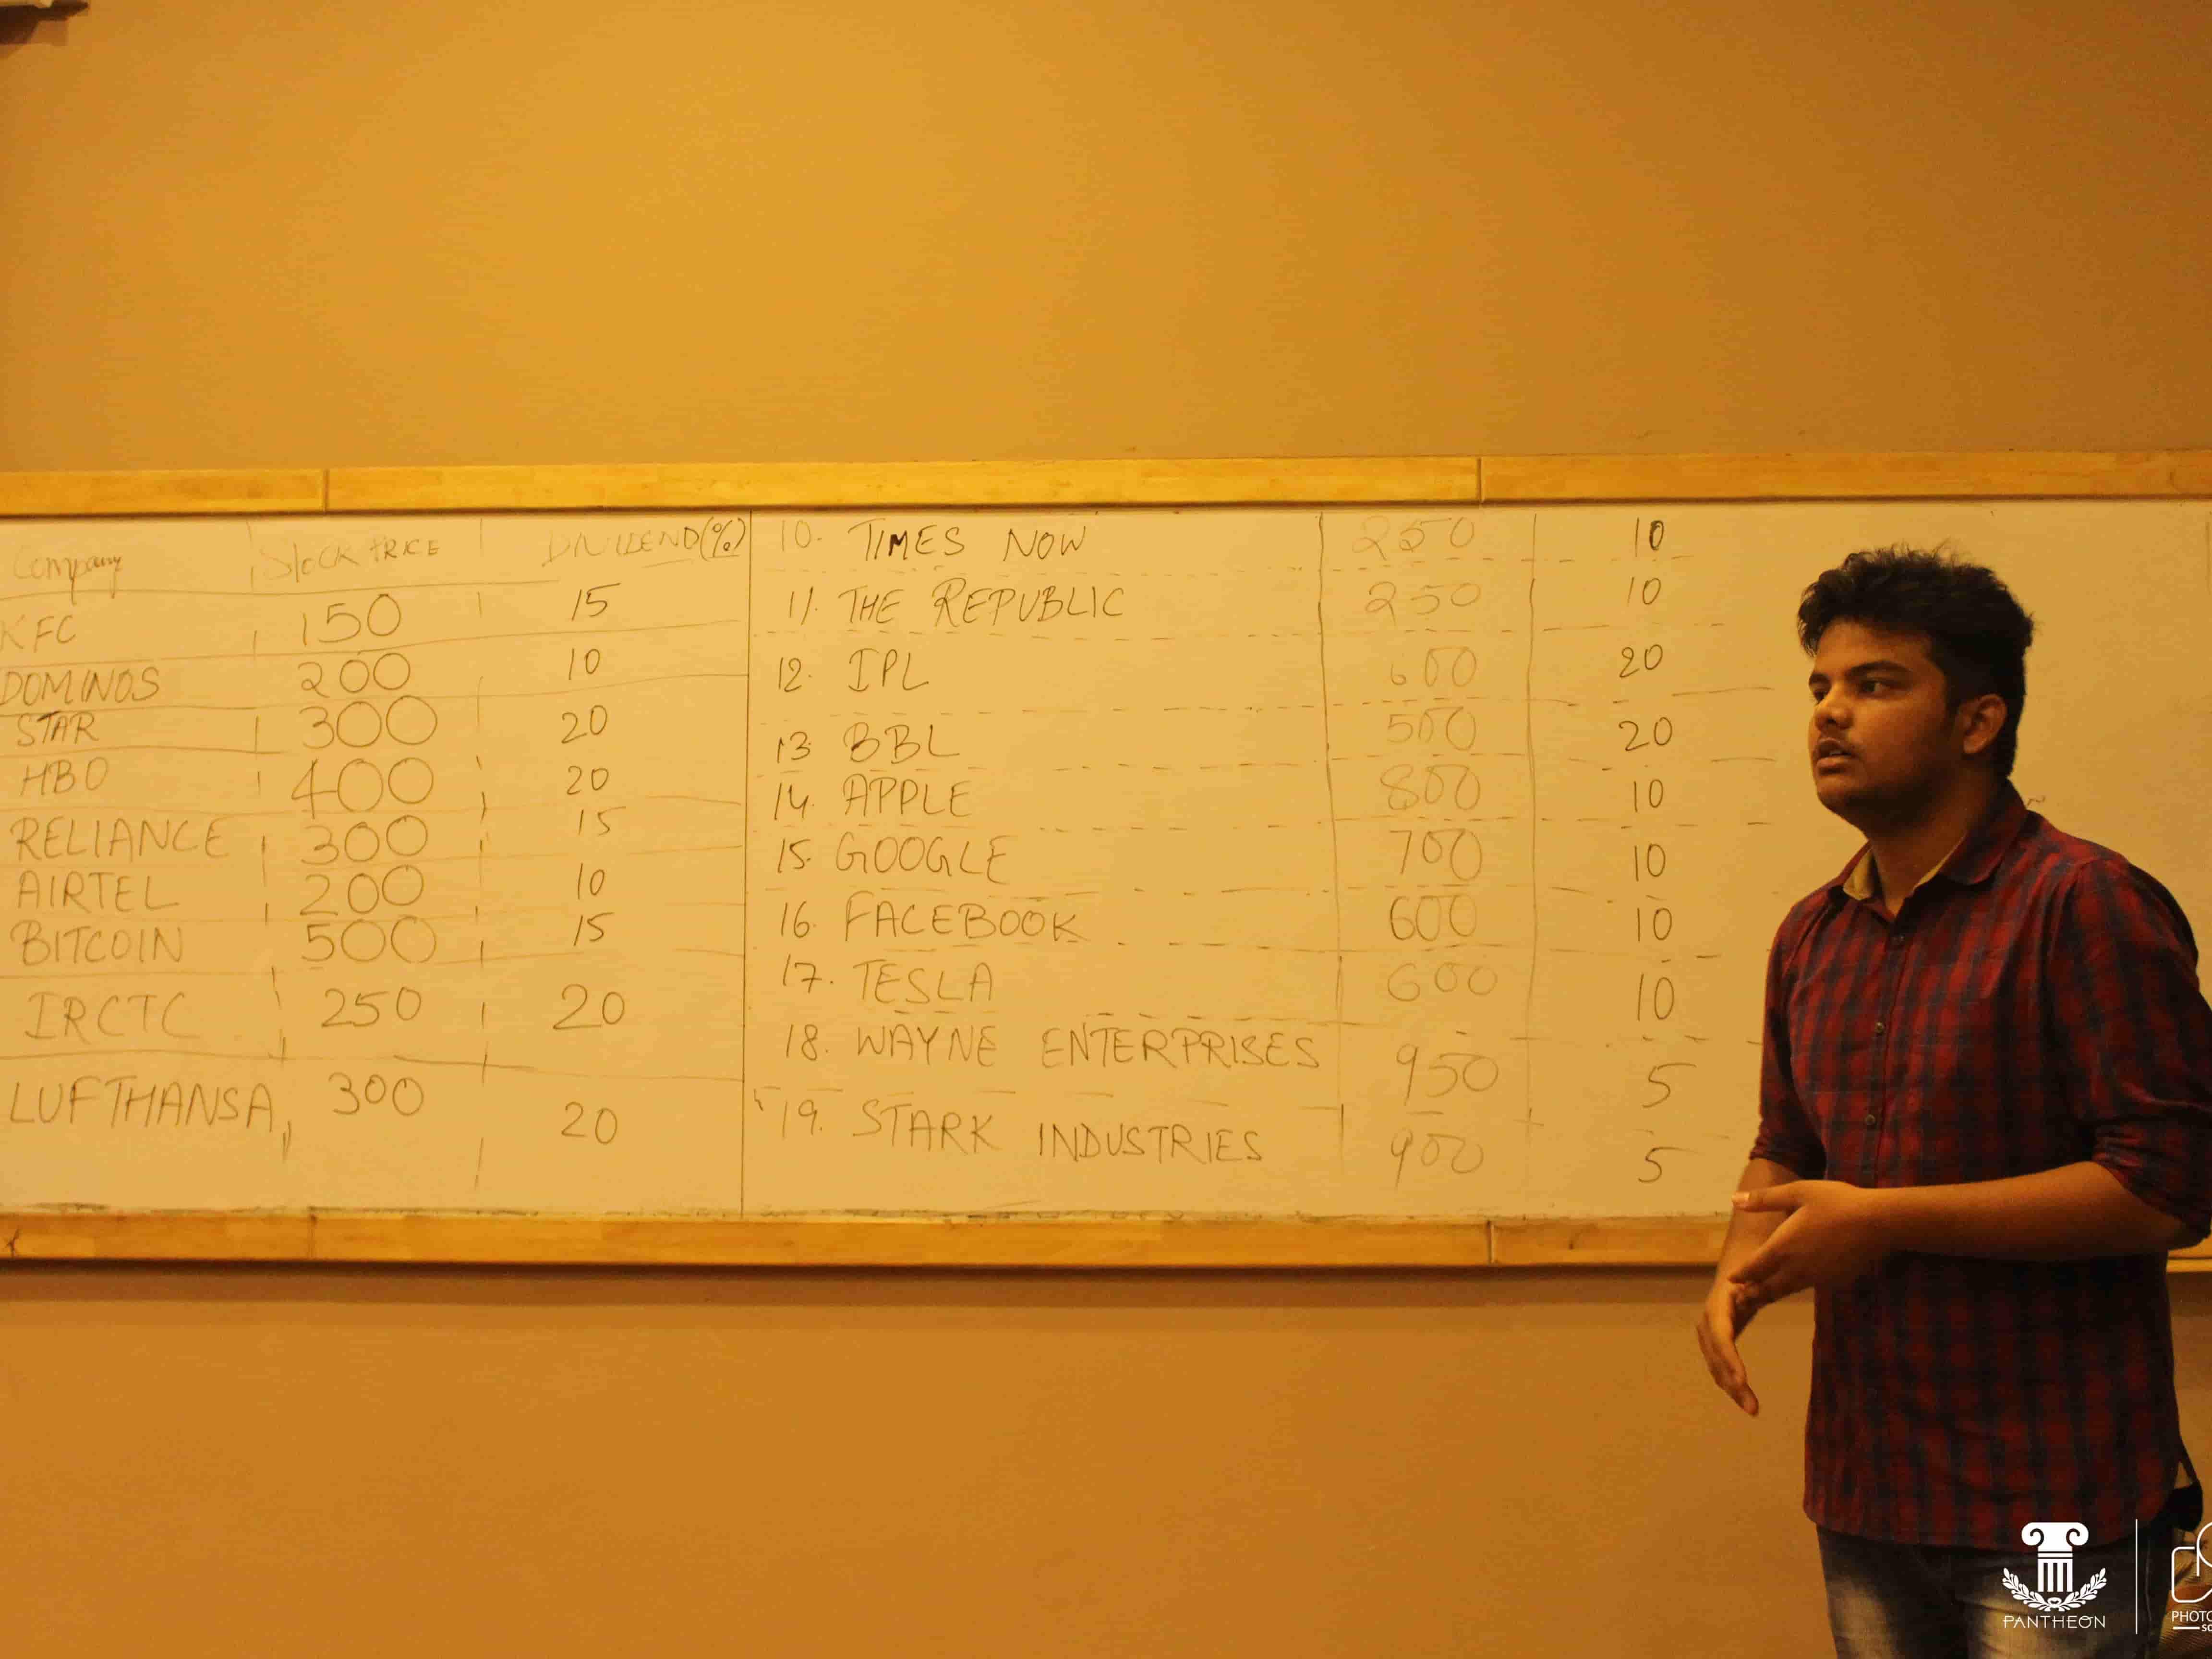 Company Stock Price DIVIDEND(%)
KFC 150 15
DOMINOS 200 10
STAR 300 20
HBO 400 20
RELIANCE 300 15
AIRTEL 200 10
BITCOIN 500 15
IRCTC 250 20
LUFTHANSA 300 20
10. TIMES NOW 250 10
11. THE REPUBLIC 250 10
12. IPL 600 20
13. BBL 500 20
14. APPLE 800 10
15. GOOGLE 700 10
16. FACEBOOK 600 10
17. TESLA 600 10
18. WAYNE ENTERPRISES 950 5
19. STARK INDUSTRIES 900 5
PANTHEON